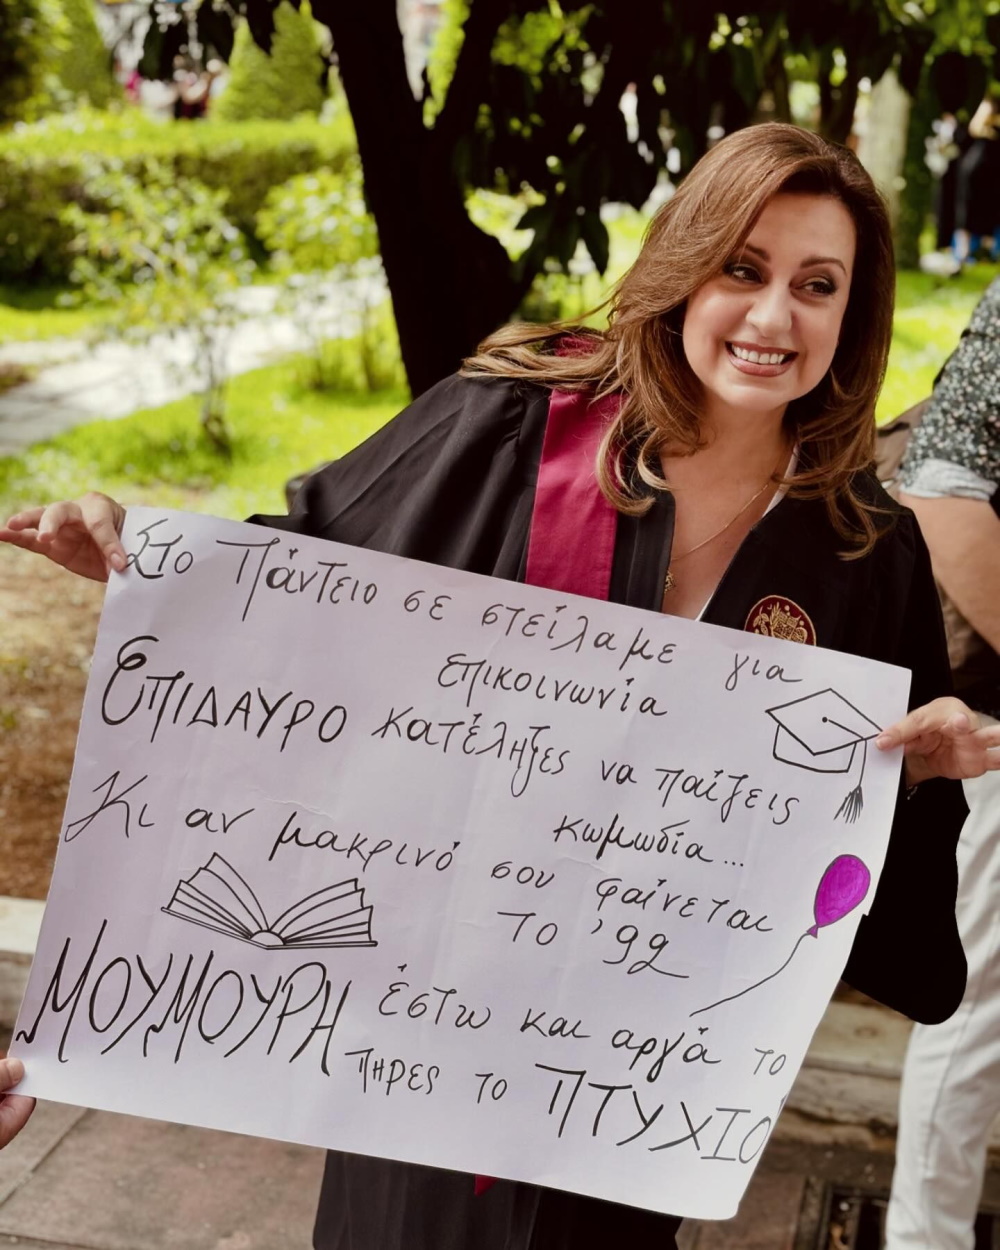 Στο Πάντειο σε στείλαμε για
επικοινωνία
ΕΠΙΔΑΥΡΟ κατέληξες να παίζεις
κωμωδία...
Κι αν μακρινό σου φαίνεται
το '92
ΜΟΥΜΟΥΡΗ έστω και αργά το
πήρες το ΠΤΥΧΙΟ